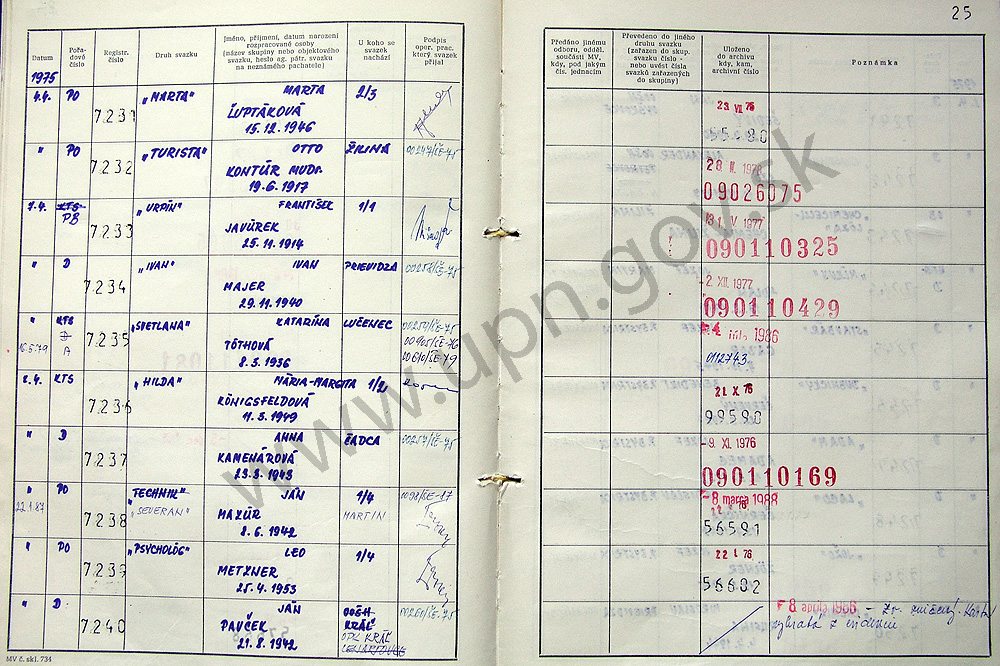 25
Datum
Pořadové číslo
Registr. číslo
Druh svazku
Jméno, příjmení, datum narození rozpracované osoby (název skupiny nebo objektového svazku, heslo ag. pátr. svazku na neznámého pachatele)
U koho se svazek nachází
Podpis oper. prac. který svazek přijal
Předáno jinému odboru, odděl. součásti MV, kdy, pod jakým čís. jednacím
Převedeno do jiného druhu svazku (zařazen do skup. svazku číslo - nebo uvést čísla svazků zařazených do skupiny)
Uloženo do archivu kdy, kam, archivní číslo
Poznámka
1975
4.4. PO 7231 „MARTA" MARTA 2/3
ĽUPTÁKOVÁ
15.12.1946
23 VII 76
55480
" PO 7232 „TURISTA" OTTO ŽILINA 00247/ČE-75
KONTÚR MUDr.
19.6.1917
09026075
7.4. KTS 7233 „URPÍN" FRANTIŠEK 1/1
PB
JAVÚREK
25.11.1914
1977
090110325
" D 7234 „IVAN" IVAN PRIEVIDZA 00258/ČE-75
MAJER
29.11.1940
-2. XII. 1977
090110429
" KTS 7235 „SVETLANA" KATARÍNA LUČENEC 00259/ČE-75
D 00905/ČE-76
16.5.79 A TÓTHOVÁ 00610/ČE-79
8.3.1936
1986
012743
8.4. KTS 7236 „HILDA" MÁRIA-MARGITA 1/2
KÖNIGSFELDOVÁ
11.3.1949
21. X. 76
99590
" D 7237 „ANNA ČADCA 00257/ČE-75
KAMENÁROVÁ
23.8.1943
-9. XI. 1976
090110169
" PO 7238 „TECHNIK" JÁN 1/4
22.1.87 „SEVERAN" MARTIN
MAZÚR
8.6.1942
-8 marca 1988
22 I 76
56591
" PO 7239 „PSYCHOLÓG" LEO 1/4
METZNER
25.4.1953
22 I 76
56602
" D 7240 „JÁN
PAVČEK KRÁĽ
21.8.1942 OPK KRÁĽ
8 apríla 1986 - Zv. zničený.
vybratá z evidencie.
MV č. skl. 734
www.upn.gov.sk